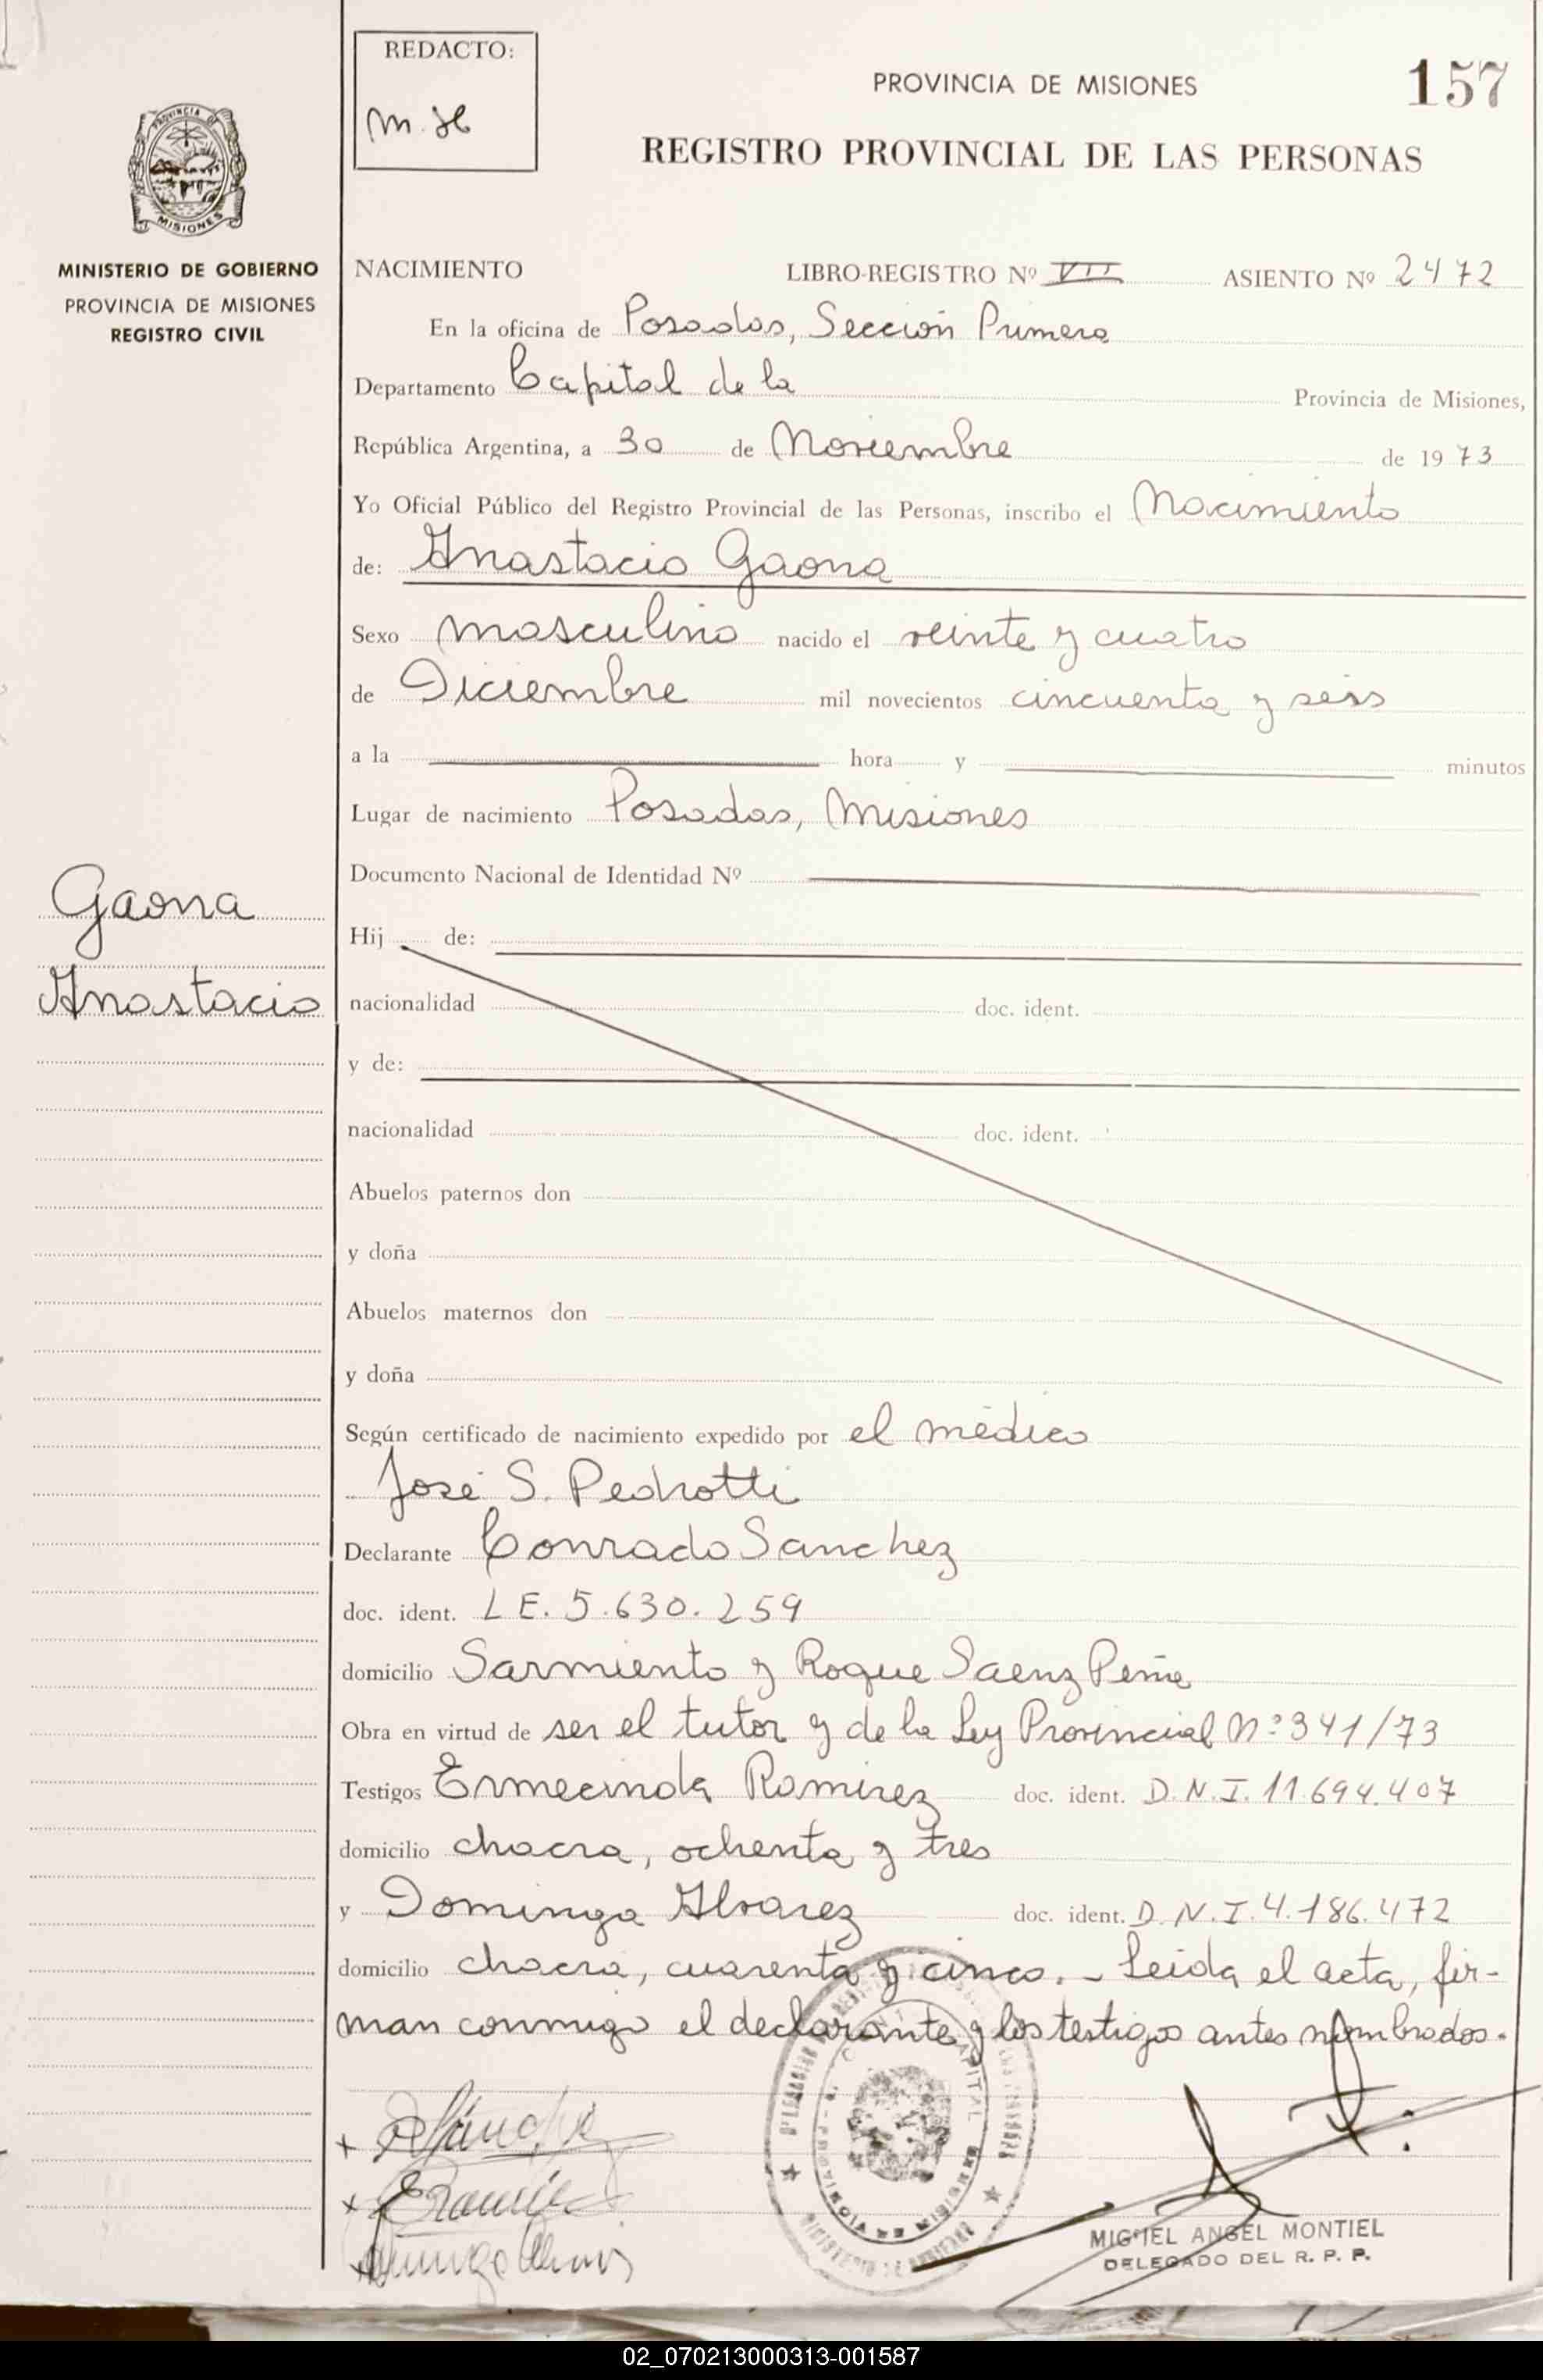 REDACTO:
m. se
PROVINCIA DE MISIONES
157
REGISTRO PROVINCIAL DE LAS PERSONAS
PROVINCIA DE
MISIONES
MINISTERIO DE GOBIERNO
PROVINCIA DE MISIONES
REGISTRO CIVIL
NACIMIENTO LIBRO-REGISTRO Nº VII ASIENTO Nº 2472
En la oficina de Posadas, Sección Primera
Departamento Capital de la Provincia de Misiones,
República Argentina, a 30 de Noviembre de 1973
Yo Oficial Público del Registro Provincial de las Personas, inscribo el Nacimiento
de: Anastacio Gaona
Sexo masculino nacido el veinte y cuatro
de Diciembre mil novecientos cincuenta y seis
a la hora y minutos
Lugar de nacimiento Posadas, Misiones
Documento Nacional de Identidad Nº
Gaona
Anastacio
Hij de:
nacionalidad doc. ident.
y de:
nacionalidad doc. ident.
Abuelos paternos don
y doña
Abuelos maternos don
y doña
Según certificado de nacimiento expedido por el médico
José S. Pedrotti
Declarante Conrado Sanchez
doc. ident. L E. 5.630.259
domicilio Sarmiento y Roque Saenz Peña
Obra en virtud de ser el tutor y de la Ley Provincial Nº 341/73
Testigos Ermecinda Ramirez doc. ident. D.N.I. 11.694.407
domicilio chacra, ochenta y tres
y Dominga Alvarez doc. ident. D.N.I. 4.186.472
domicilio chacra, cuarenta y cinco. - Leida el acta, fir-
man conmigo el declarante y los testigos antes nombrados.
MIGUEL ANGEL MONTIEL
DELEGADO DEL R. P. P.
02_070213000313-001587